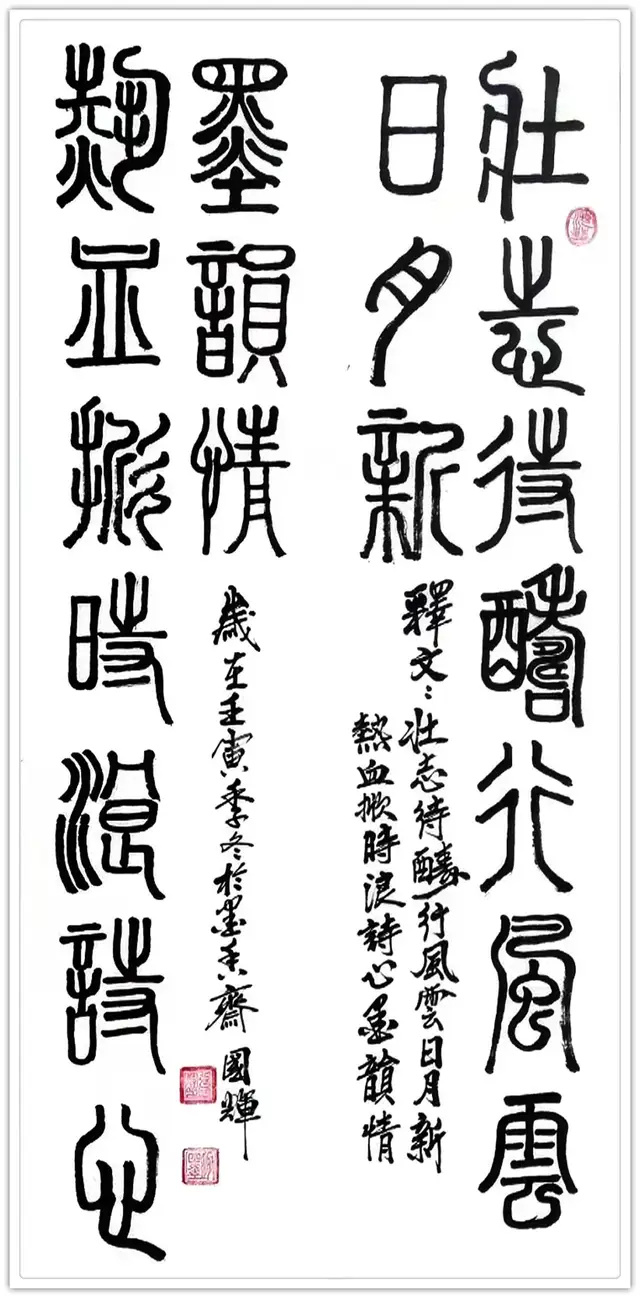 壯志待醻行風雲
日月新
釋文：壯志待醻行風雲日月新
熱血掀時浪詩心墨韻情
熱血掀時浪詩心
墨韻情
歲在壬寅季冬於墨香齋 國輝